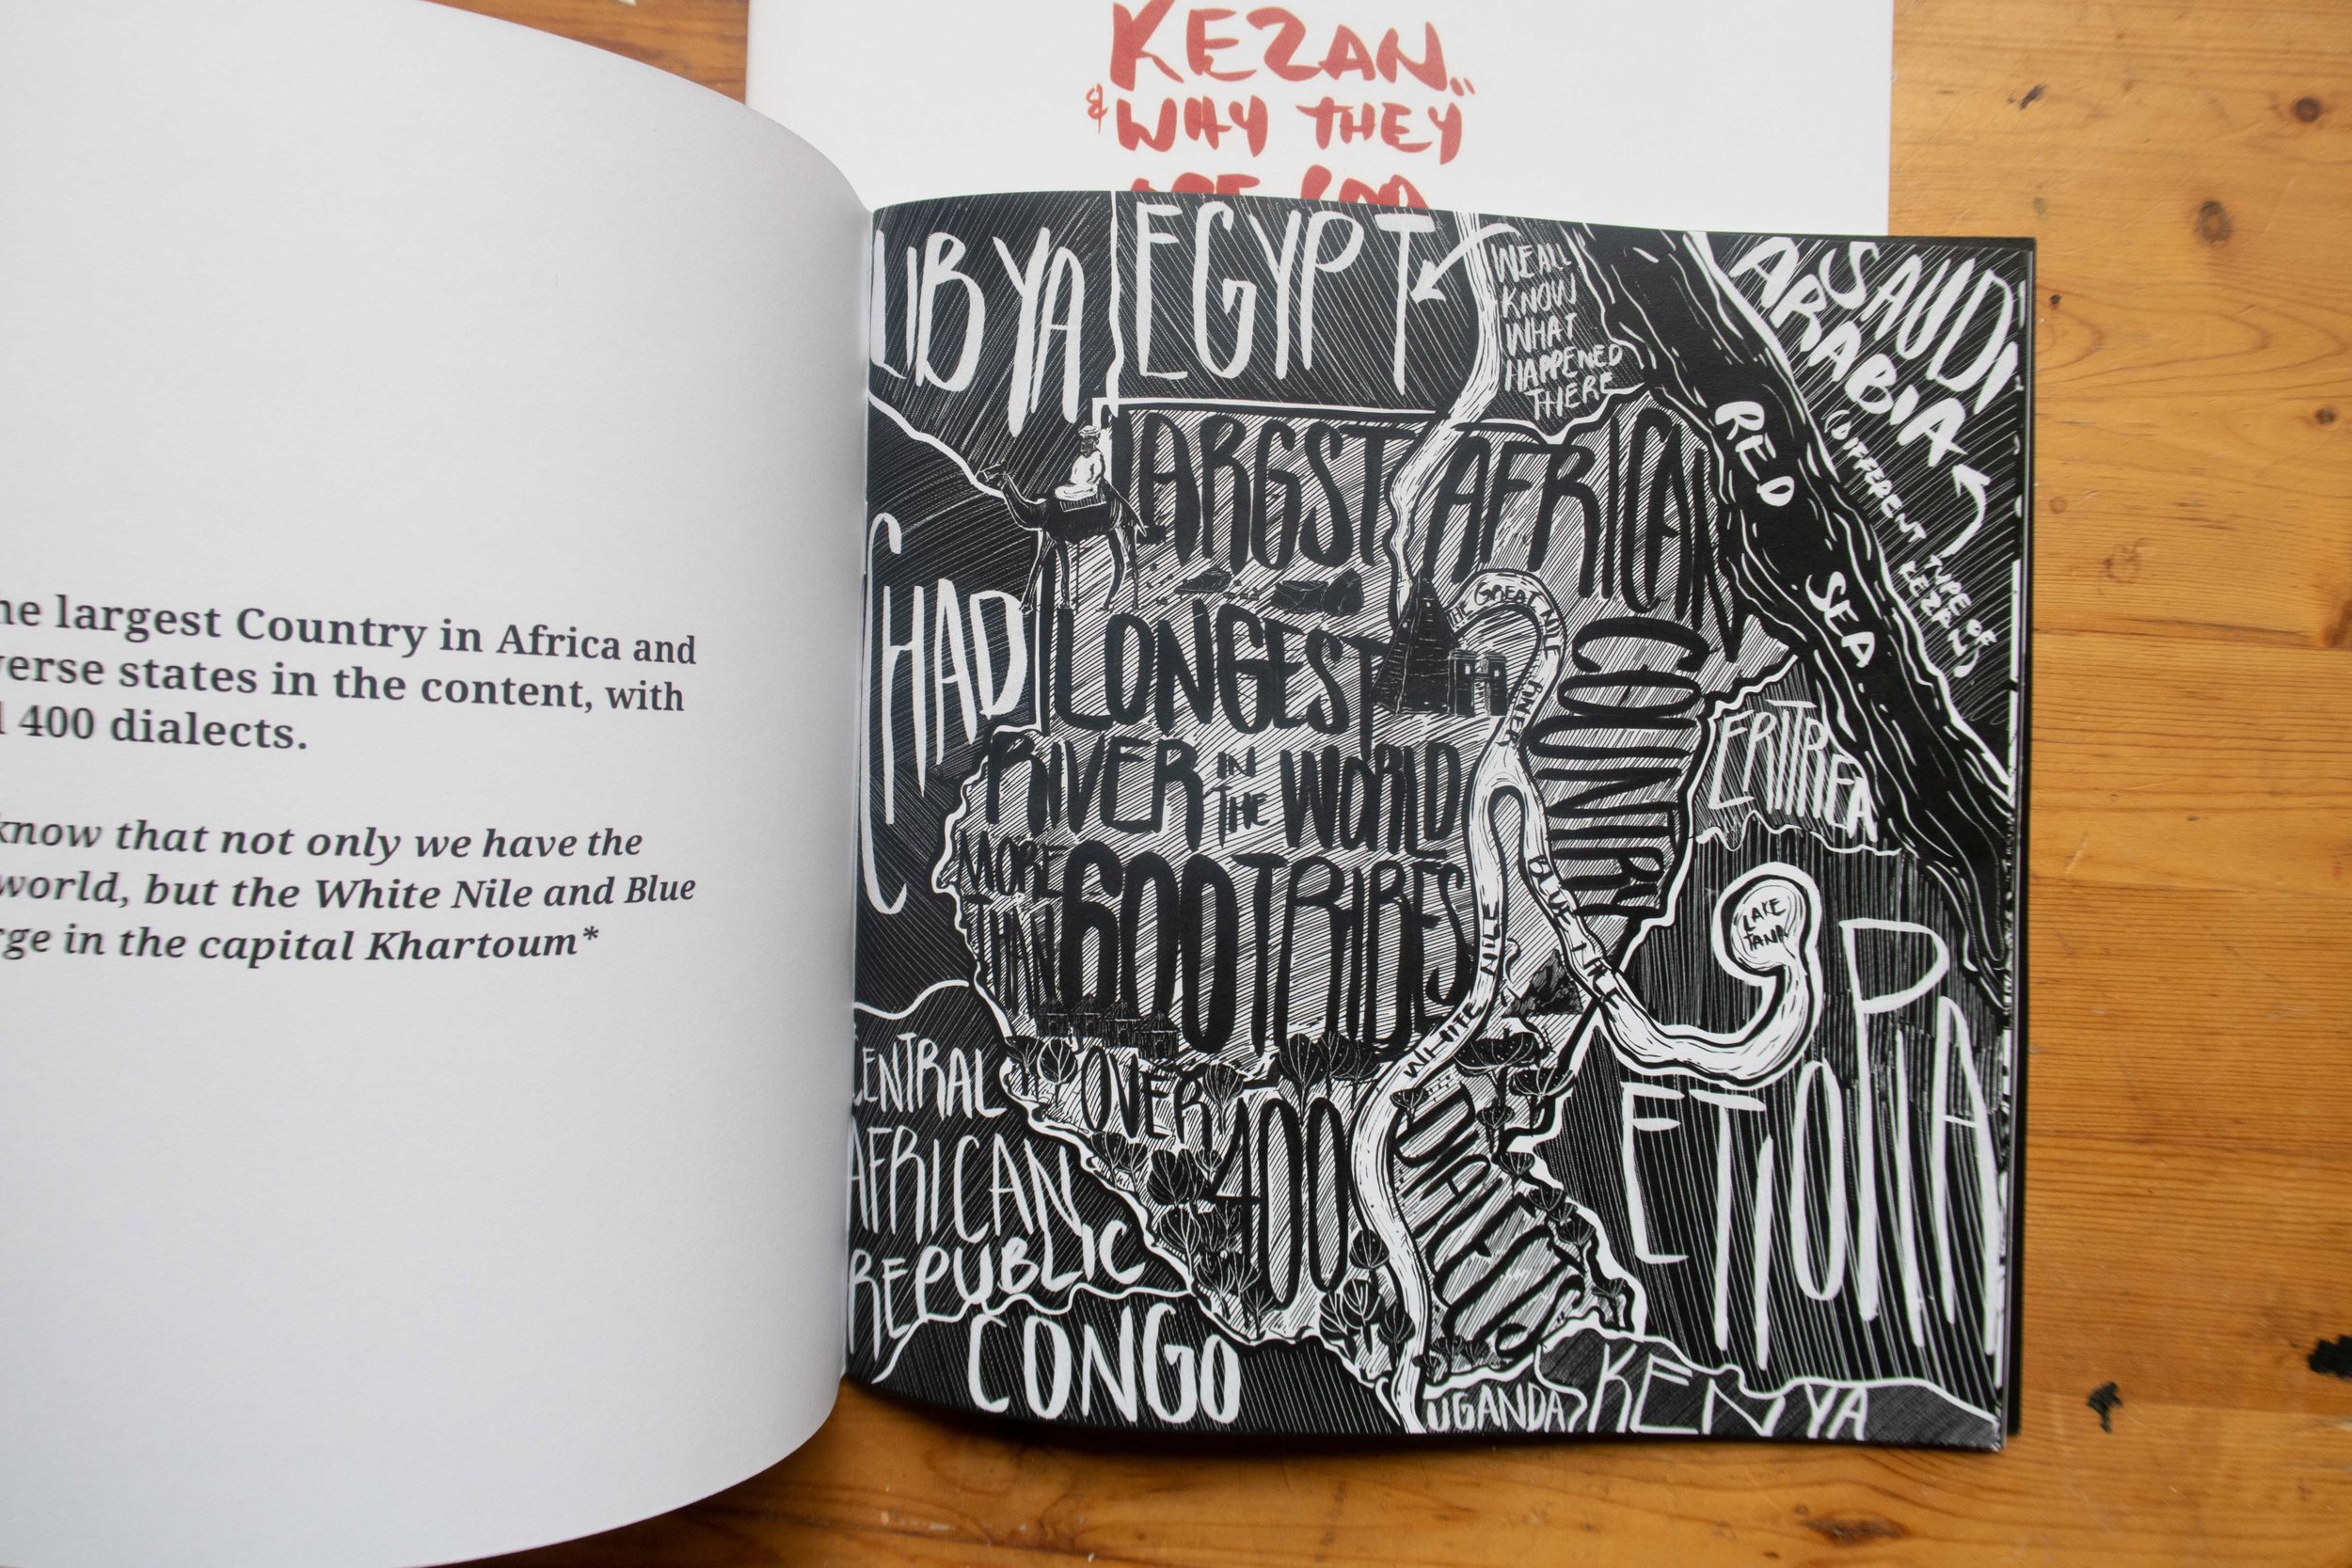 KEZAN..
& WHY THEY
largest Country in Africa and
states in the content, with
400 dialects.
know that not only we have the
world, but the White Nile and Blue
in the capital Khartoum*
LIBYA
EGYPT
WE ALL
KNOW
WHAT
HAPPENED
THERE
SAUDI
ARABIA
(DIFFERENT TYPE OF
KEZAN)
RED SEA
LARGST AFRICAN
COUNTRY
CHAD
THE GREAT NILE RIVER
LONGEST
RIVER IN THE WORLD
MORE
THAN 600 TRIBES
ERITREA
BLUE NILE
WHITE NILE
LAKE
TANA
ETIOPIA
OVER
400
DIALECTS
CENTRAL
AFRICAN
REPUBLIC
CONGO
UGANDA
KENYA